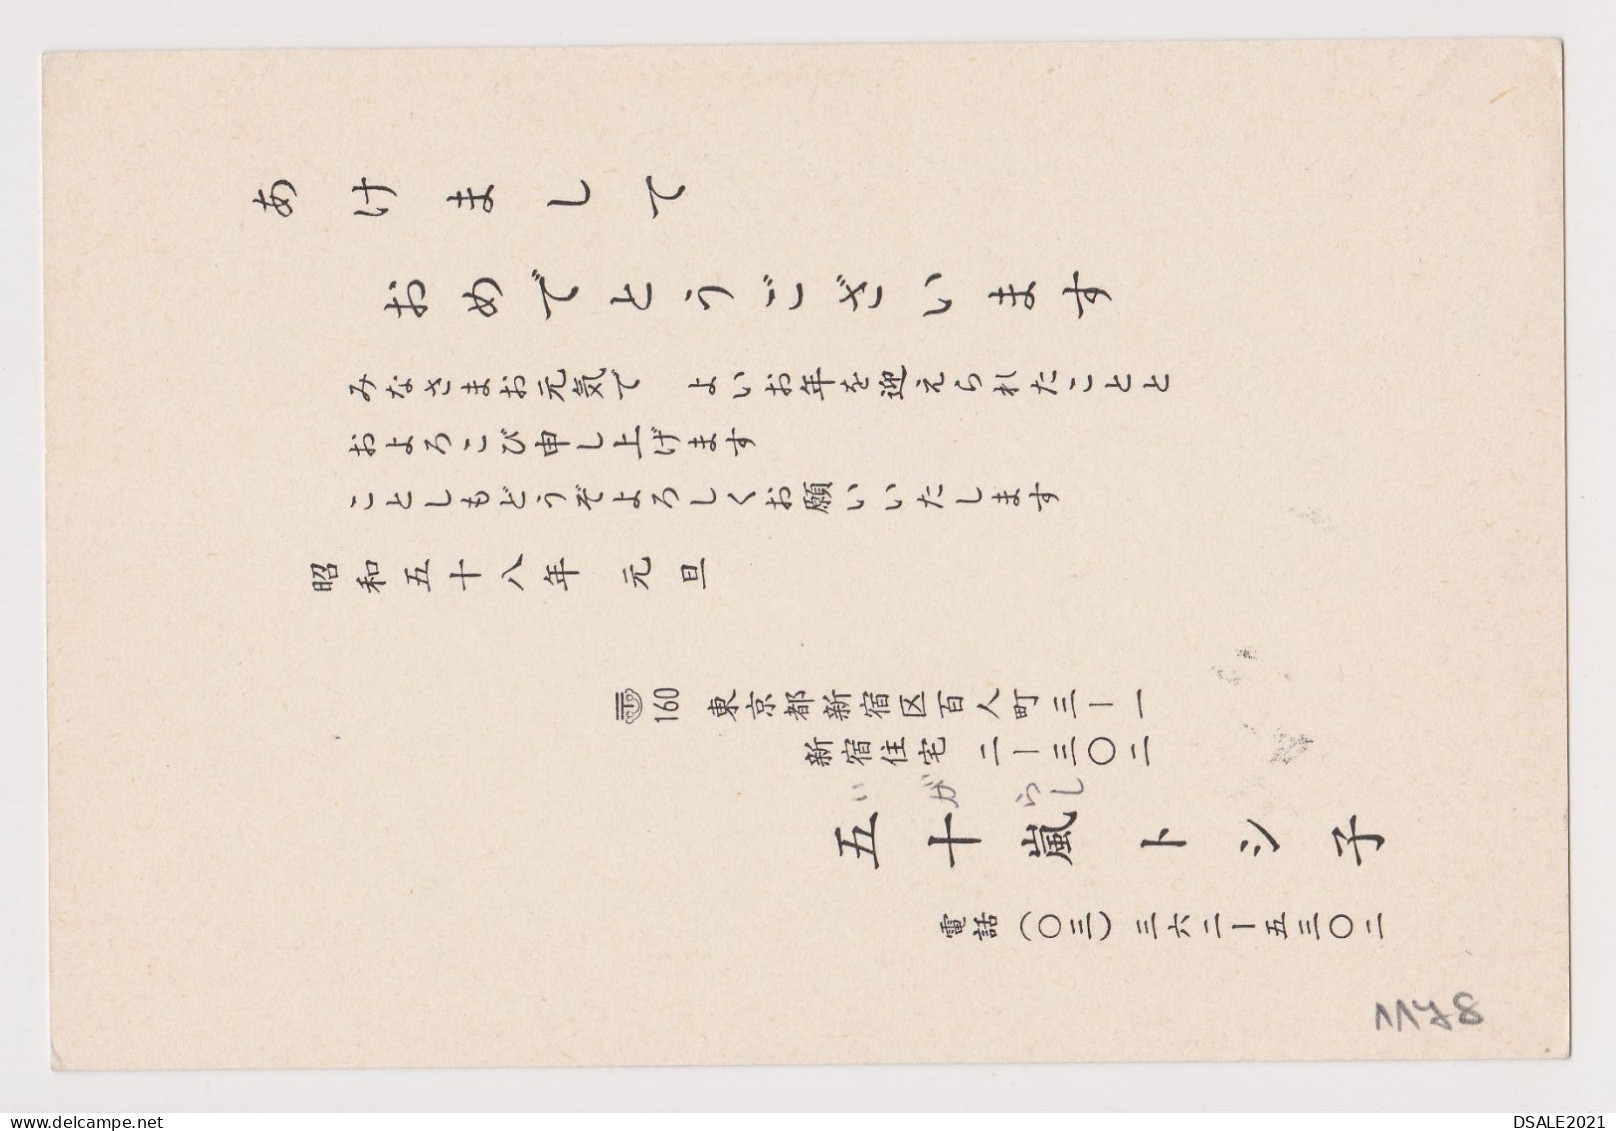 あけまして
おめでとうございます
みなさまお元気で　よいお年を迎えられたことと
およろこび申し上げます
ことしもどうぞよろしくお願いいたします
昭和五十八年　元旦
160 東京都新宿区百人町三ー一
新宿住宅　二ー三〇二
い が らし
五十嵐トシ子
電話（〇三）三六二ー五三〇二
DSALE2021